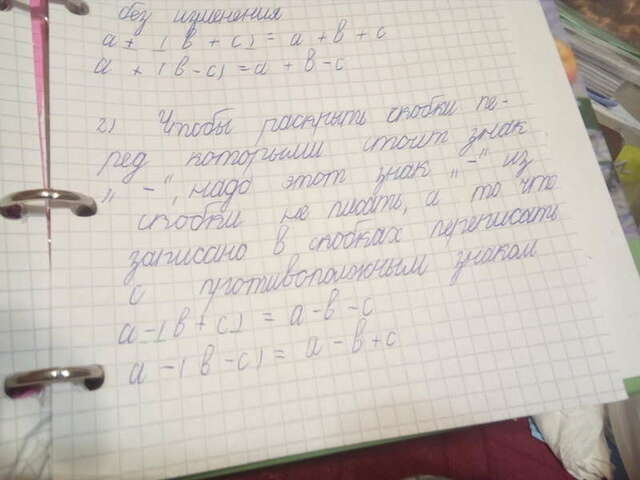 без изменения
а + (в + с) = а + в + с
а + (в - с) = а + в - с
2) Чтобы раскрыть скобки пе-
ред которыми стоит знак
„ - “, надо этот знак „ - “ из
скобки не писать, а то что
записано в скобках переписать
с противоположным знаком
а - (в + с) = а - в - с
а - (в - с) = а - в + с